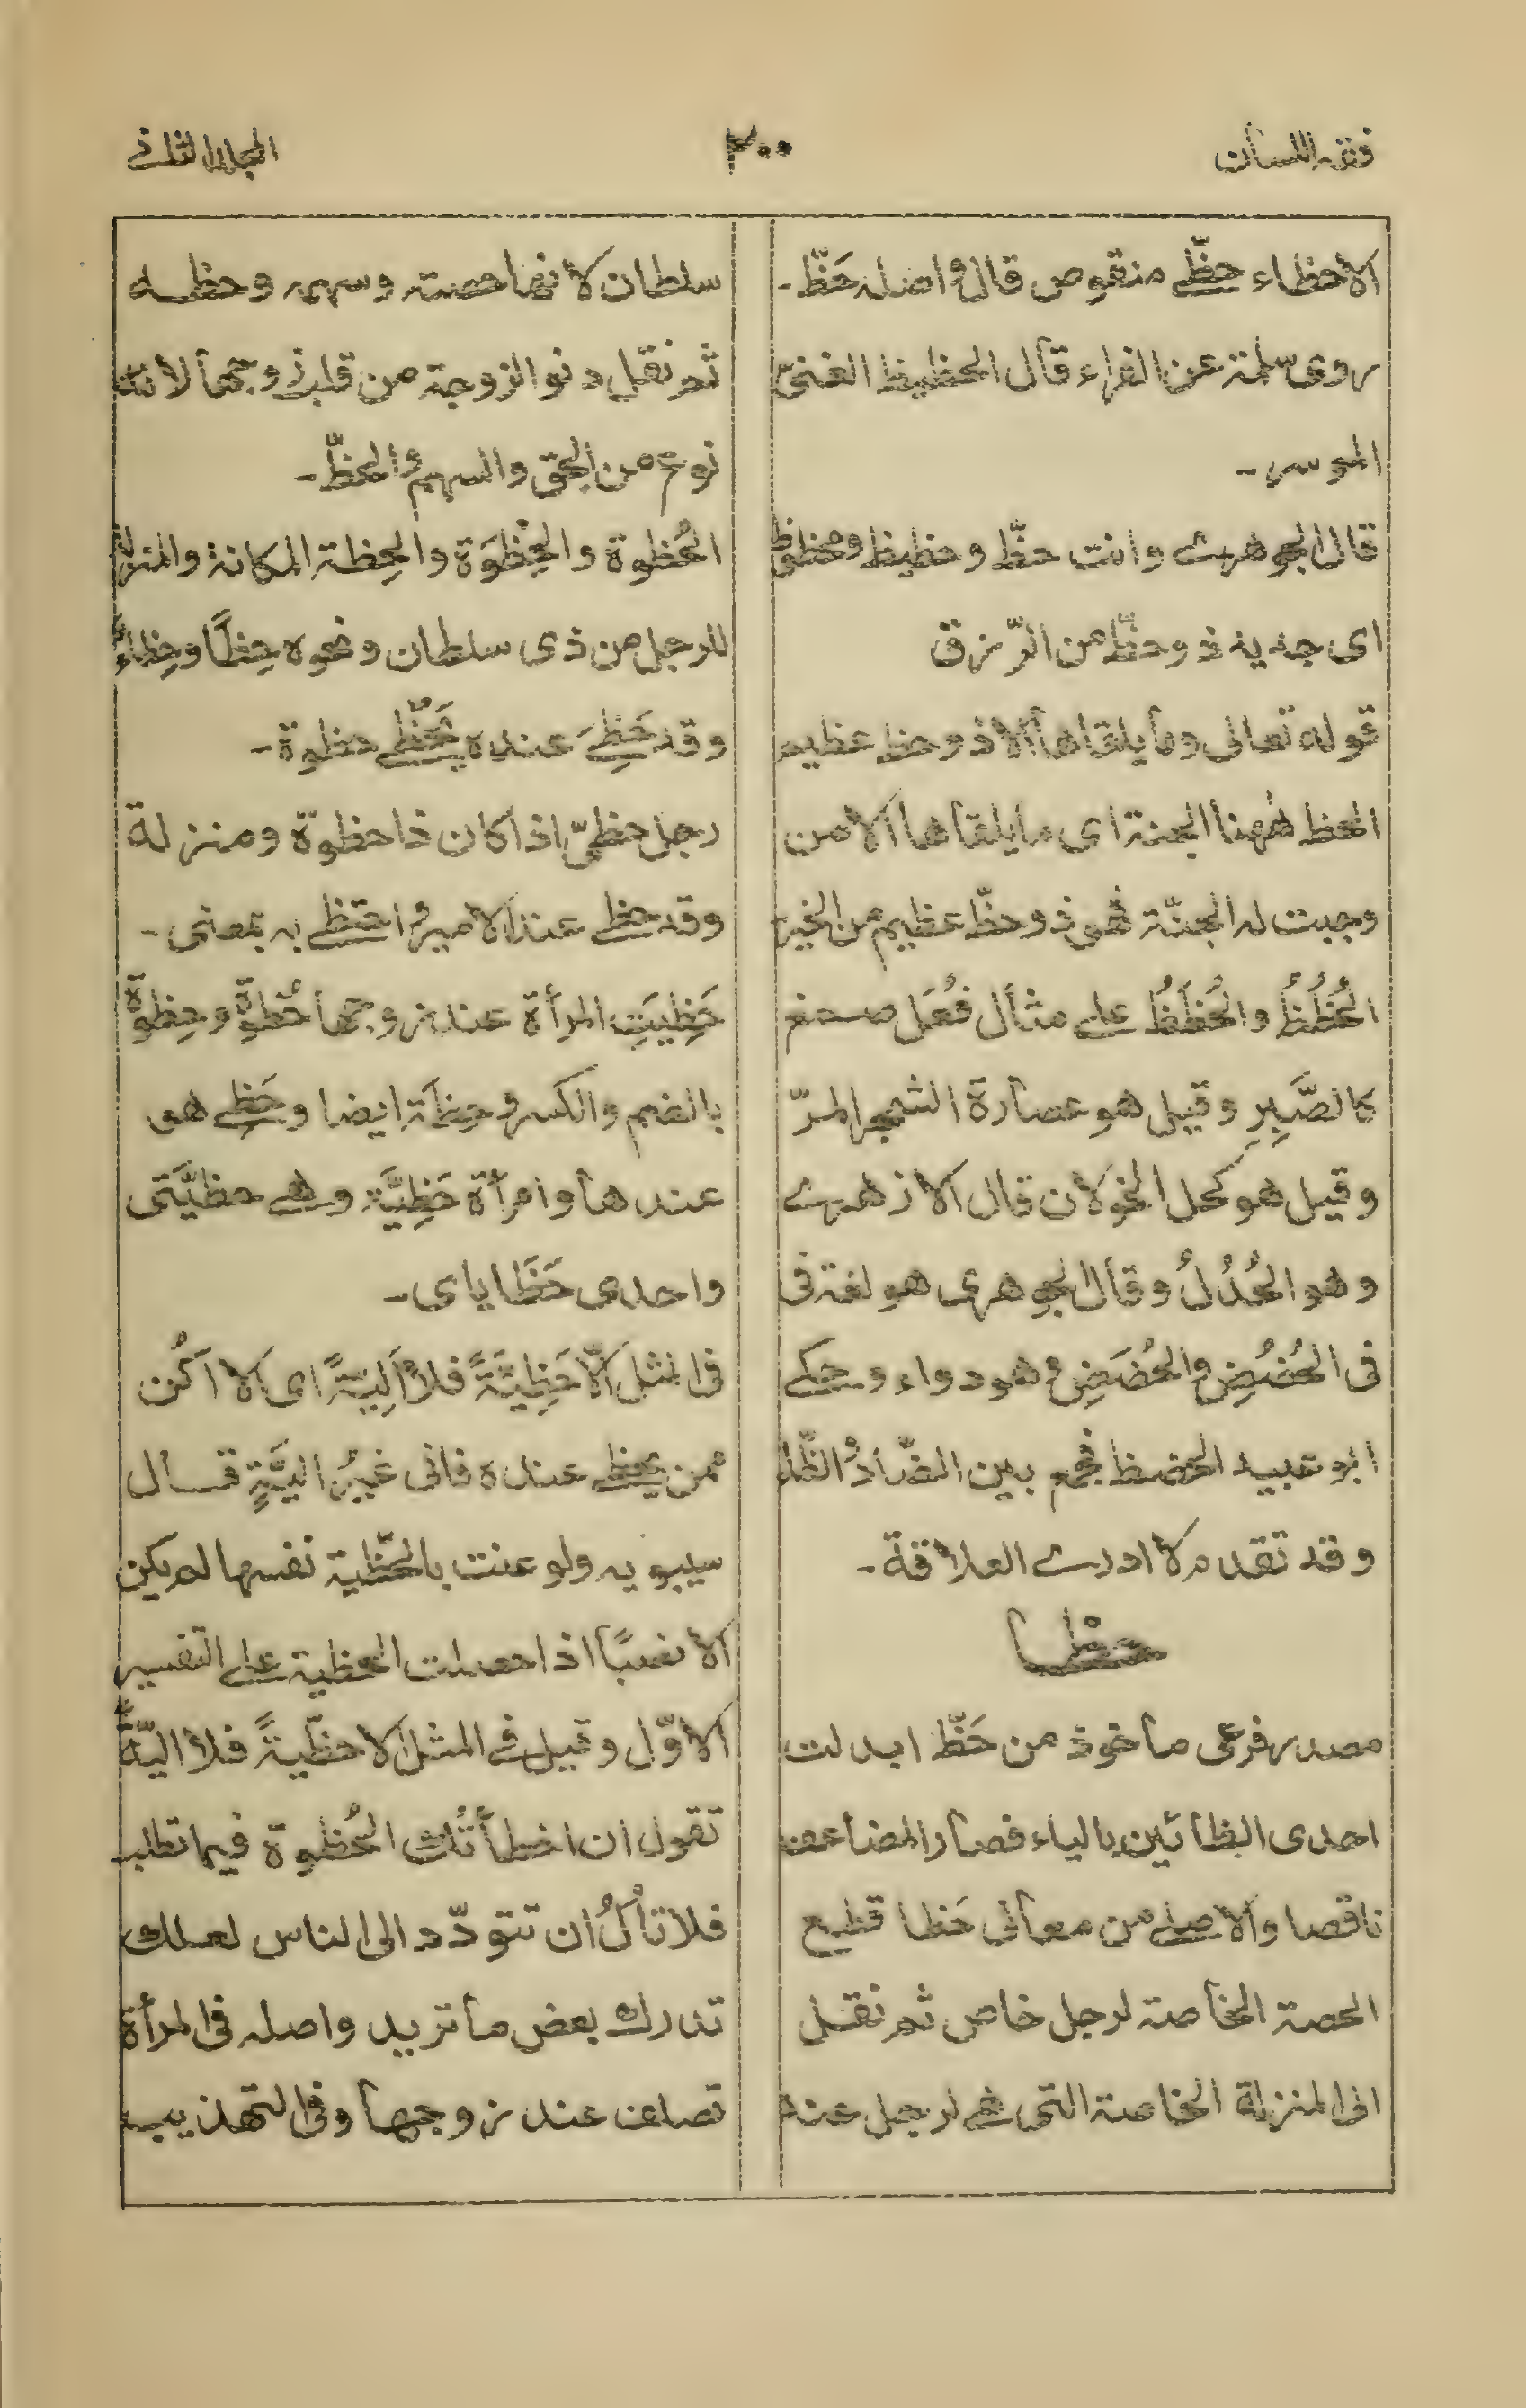 فقه اللسان
٣٠٠
المجلد الثانى
الاحظاء حظّے منقوص قال واصله حَظّ۔
روى سلمة عن الفراء قال الحظيظ الغنىّ
الموسر۔
قال الجوهرے وانت حظّ وحظيظ ومحظوظ
اى جديد ذو حظّ من الرّزق
قوله تعالى وما يلقاها الا ذو حظ عظيم
الحظ ههنا الجنة اى ما يلقاها الا من
وجبت له الجنّة فهو ذو حظّ عظيم من الخير
الحُظُظُ والحُظَظُ علے مثال فُعَل صمغ
كالصَّبِرِ وقيل هو عصارة الشجر المرّ
وقيل هو كحل الخولان قال الازهرے
وهو الحُدُلُ وقال الجوهرى هو لغة فى
فى الحُضُضِ والحُضَضِ وهو دواء وحكے
ابو عبيد الحضظ فجمع بين الضّاد والظّاء
وقد تقدم لا ادرے العلاقة۔
حظا
مصدر فرعى ماخوذ من حَظّ ابدلت
احدى الظائين بالياء فصار المضاعف
ناقصا والاصلے من معانى حَظا قطيع
الحصة الخاصة لرجل خاص ثم نقل
الى المنزلة الخاصة التى هے لرجل عند
سلطان لانها حصته وسهمه وحظه
ثم نقل دنو الزوجة من قلب زوجها لانه
نوع من الحق والسهم والحظّ۔
الحُظوة والحِظْوَة والحِظة المكانة والمنزلة
للرجل من ذى سلطان ونحوه حِظًا وحِظاء
وقد حَظِىَ عنده يَحْظے حظوة۔
رجل حظىّ اذا كان ذا حظوة ومنزلة
وقد حظے عند الامير واحتظے به بمعنى۔
حَظِيَتِ المرأة عند زوجها حُظوةً وحِظوةً
بالضم والكسر وحِظَةً ايضا وحَظے هو
عندها وامرأة حَظِيَّة وهے حظيَّتى
واحدى حَظَاياى۔
فى المثل اِلّا حَظِيَّةً فلا اَلِيَّةً اى لا اَكُن
ممن يحظے عنده فانى غيرُ اَلِيَّةٍ قال
سيبويه ولو عنت بالحَظّية نفسها لم يكن
الا نصبًا اذا جعلت الحظية علے التفسير
الاوّل وقيل فے المثل الا حظّيةً فلا اليّةً
تقول ان اخطأتْك الحُظوة فيما تطلب
فلا تألُ ان تتودّد الى الناس لعلك
تدرك بعض ما تريد واصله فى المرأة
تصلف عند زوجها وفى التهذيب